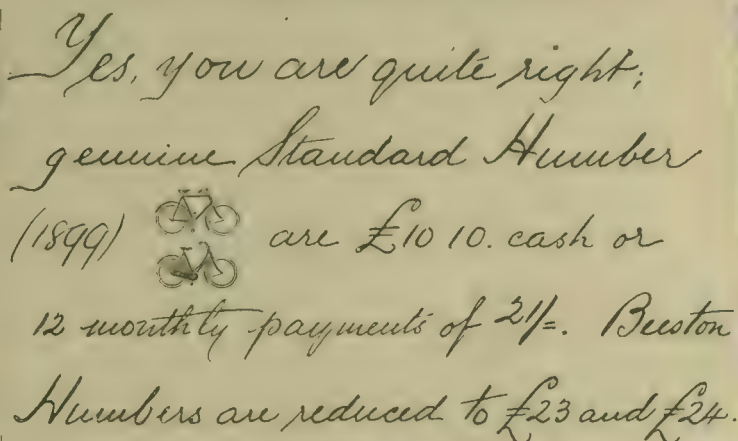 Yes, you are quite right;
genuine Standard Humber
(1899) are £10 10. cash or
12 monthly payments of 21/=. Beeston
Humbers are reduced to £23 and £24.